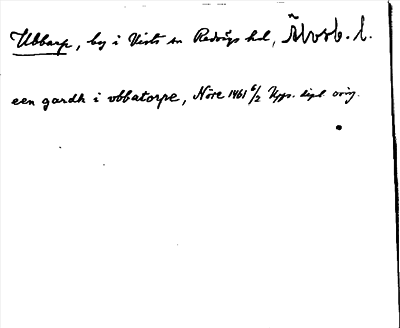 Ubbarp, by i Vists sn Redvägs hd, Älvsb. l.
een gardh i vbbatorpe, Nöre 1461 6/2 Upps. dipl orig.